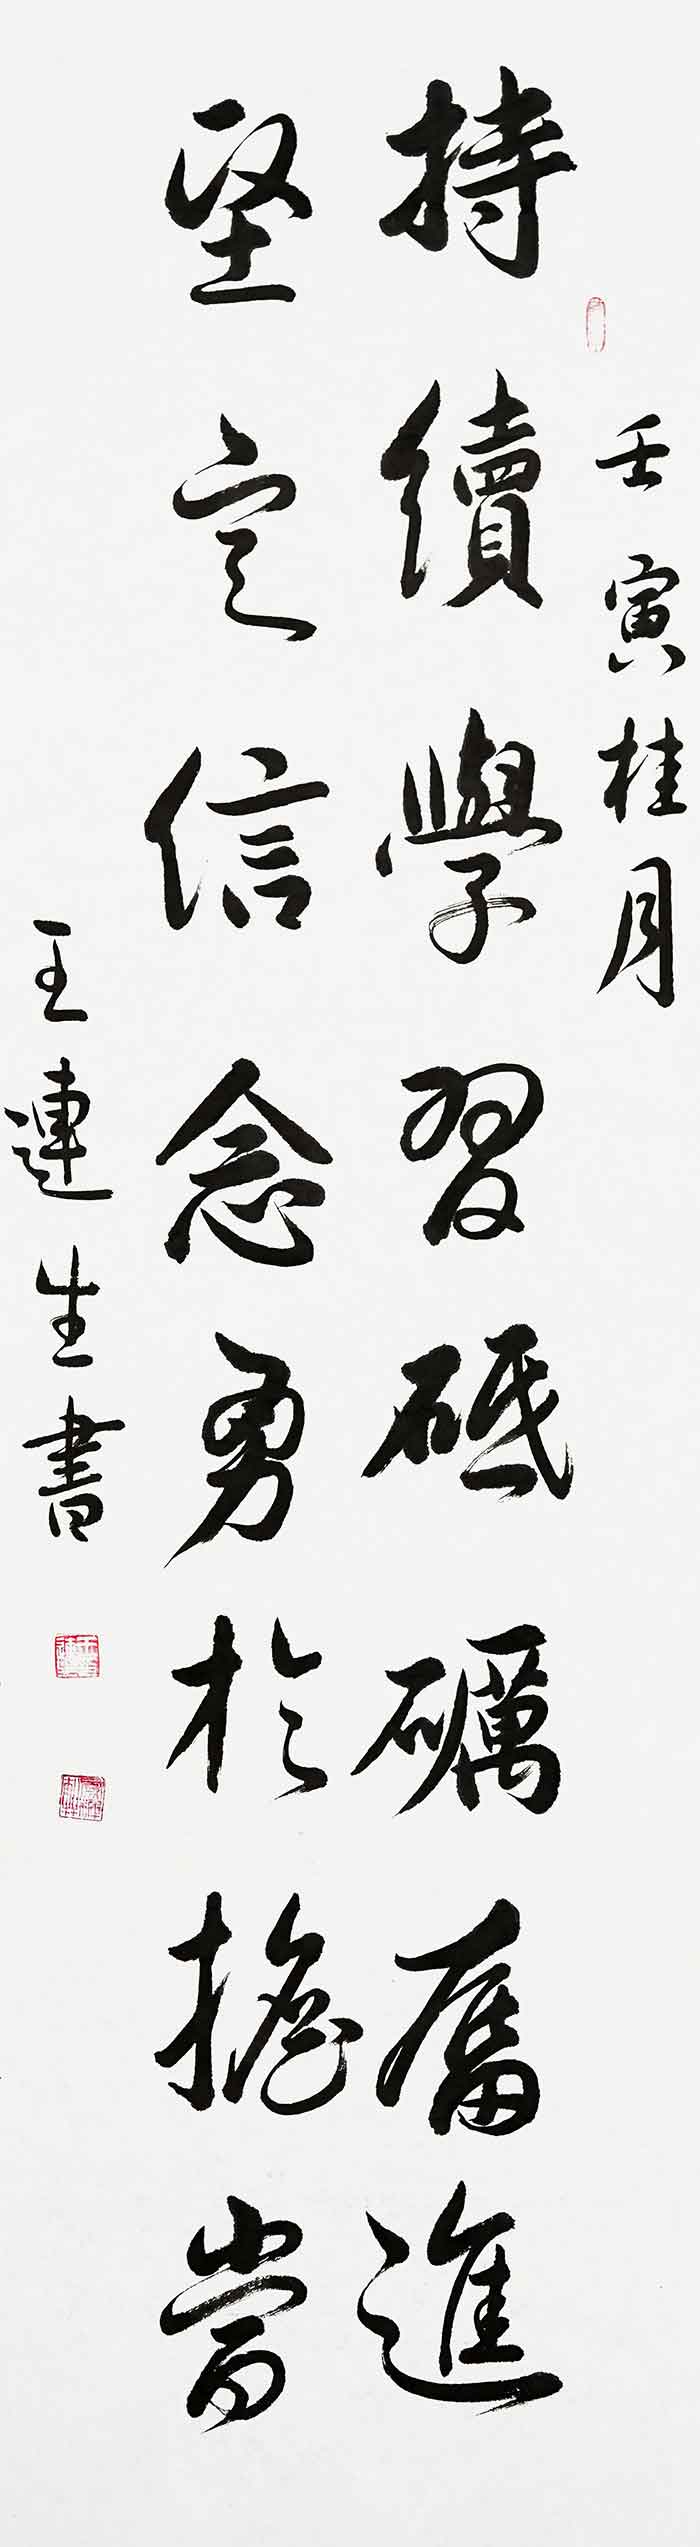 壬寅桂月
持續學習砥礪奮進
坚定信念勇於擔當
王連生書